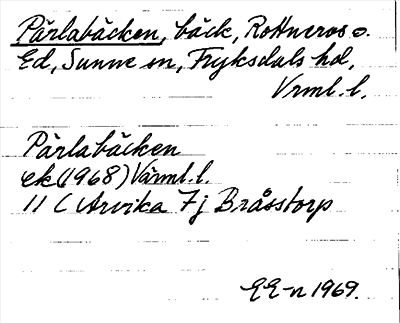 Pärlabäcken, bäck, Rottneros o.
Ed, Sunne sn, Fryksdals hd,
Vrml. l.
Pärlabäcken
ek (1968) Värml. l.
11 C Arvika 7j Bråstorp
EE-n 1969.